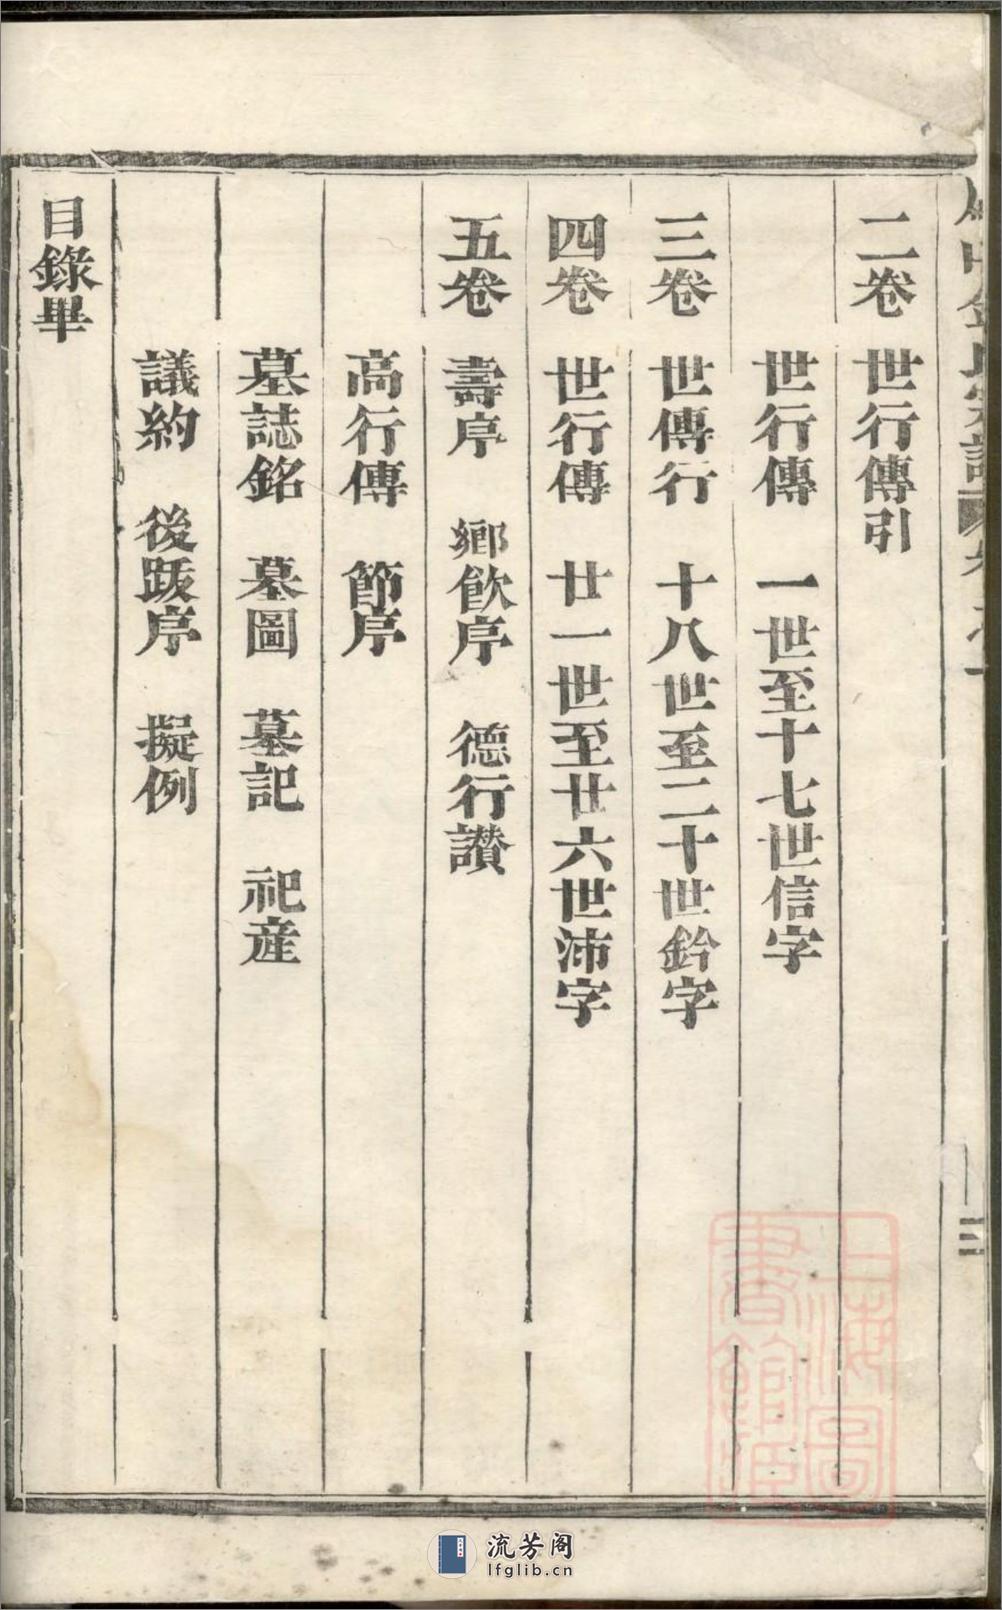 二卷 世行傳引
世行傳 一世至十七世信字
三卷 世傳行 十八世至二十世鈐字
四卷 世行傳 廿一世至廿六世沛字
五卷 壽序 鄉飲序 德行讃
高行傳 節序
墓誌銘 墓圖 墓記 祀産
議約 後跋序 擬例
目錄畢
三
上海圖書館藏
流芳阁
lfglib.cn